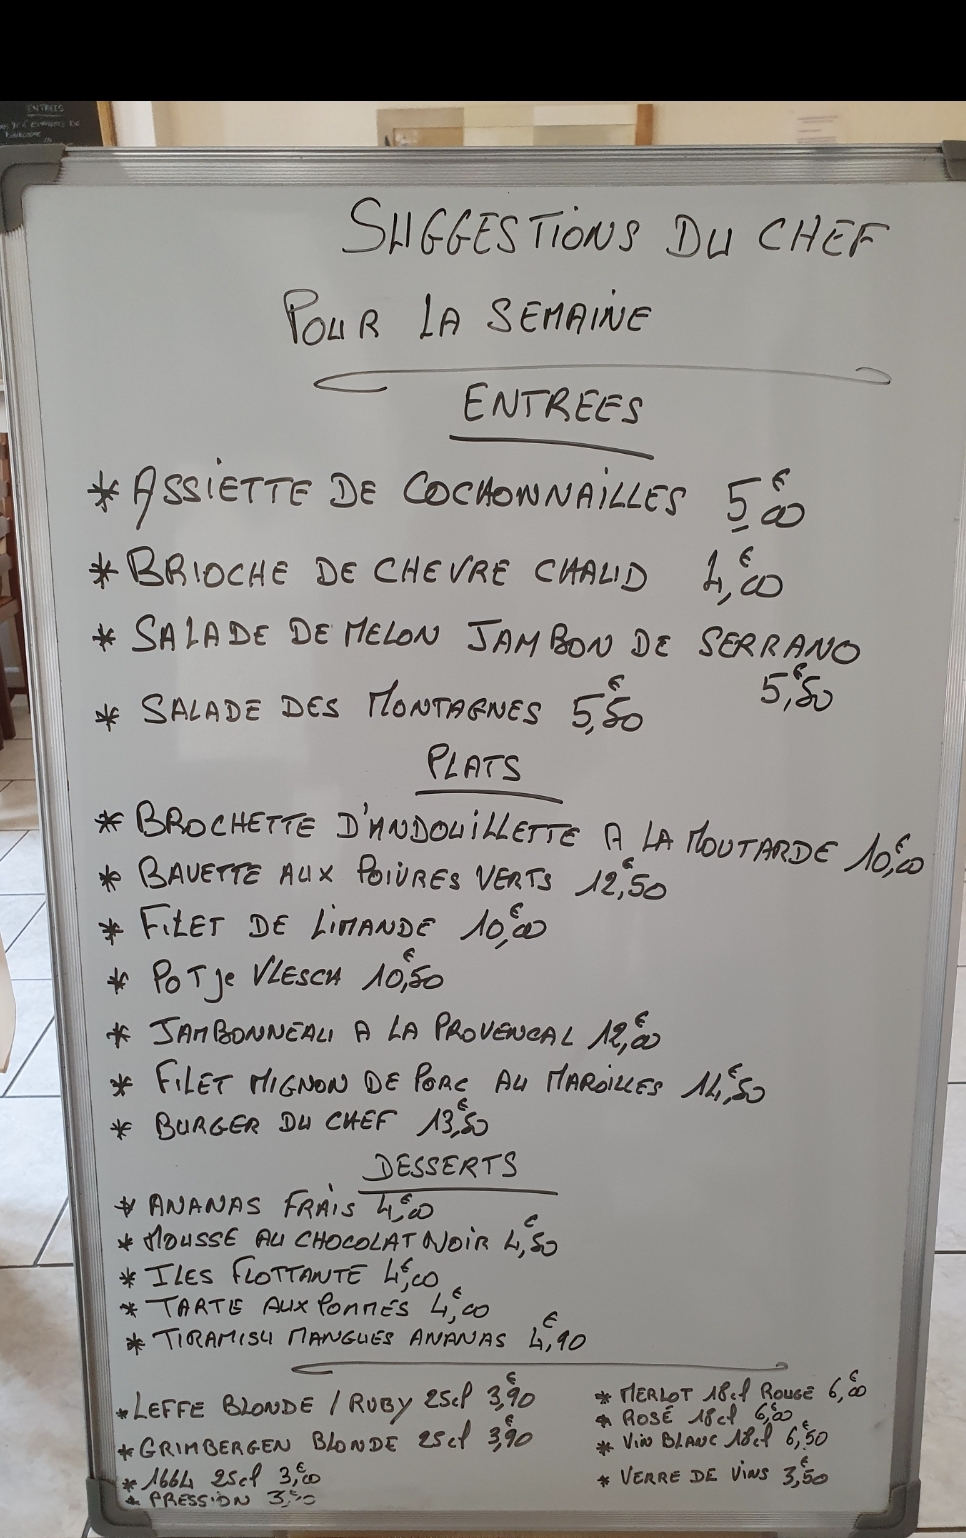 ENTREES
SUGGESTIONS DU CHEF
POUR LA SEMAINE
ENTREES
* ASSIETTE DE COCHONNAILLES 5€00
* BRIOCHE DE CHEVRE CHAUD 4,€00
* SALADE DE MELON JAMBON DE SERRANO
5,€50
* SALADE DES MONTAGNES 5,€50
PLATS
* BROCHETTE D'ANDOUILLETTE A LA MOUTARDE 10,€00
* BAVETTE AUX POIVRES VERTS 12,€50
* FILET DE LIMANDE 10,€00
* POTje VLESCH 10,€50
* JAMBONNEAU A LA PROVENCAL 12,€00
* FILET MIGNON DE PORC AU MAROILLES 14,€50
* BURGER DU CHEF 13,€50
DESSERTS
* ANANAS FRAIS 4,€00
* MOUSSE AU CHOCOLAT NOIR 4,€50
* ILES FLOTTANTE 4,€00
* TARTE AUX POMMES 4,€00
* TIRAMISU MANGUES ANANAS 4,€90
* LEFFE BLONDE / RUBY 25cl 3,€90
* GRIMBERGEN BLONDE 25cl 3,€90
* 1664 25cl 3,€00
* PRESSION
* MERLOT 18cl ROUGE 6,€00
* ROSÉ 18cl 6,€00
* VIN BLANC 18cl 6,€50
* VERRE DE VINS 3,€50